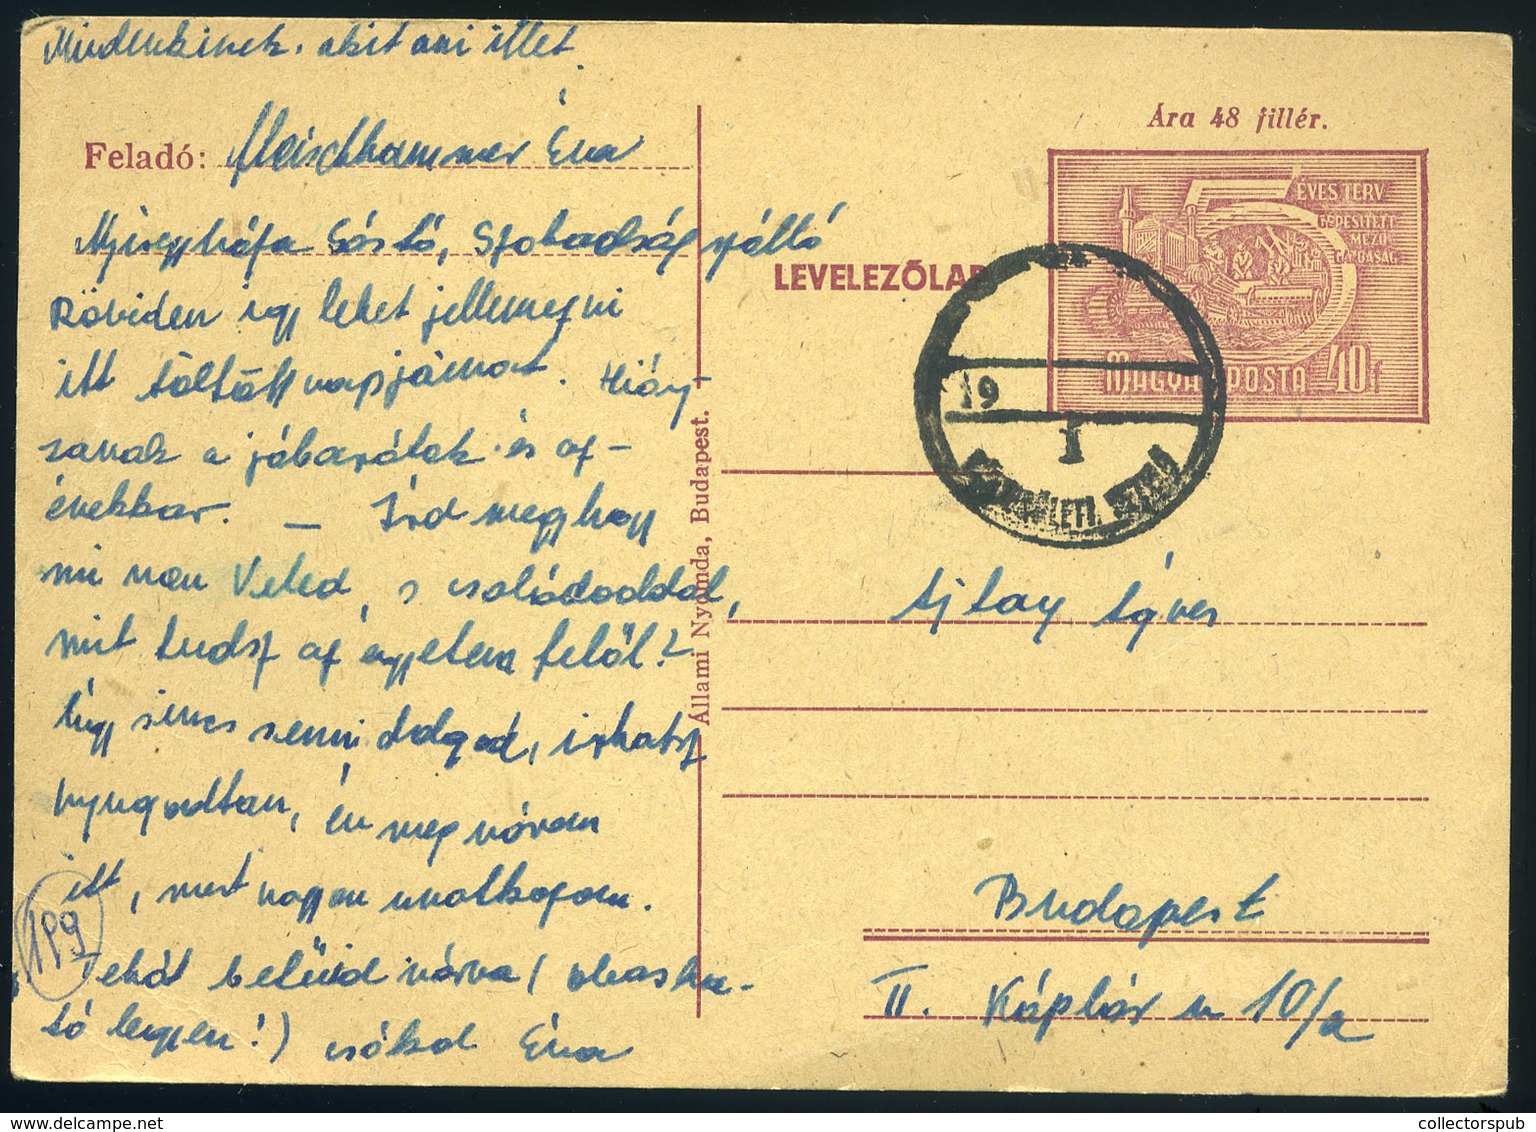 Mindenkinek, akit ami illet.
Feladó: Fleischhammer Éva
Nyíregyháza Sóstó, Szabadság szálló
Röviden így lehet jellemezni
itt töltött napjaimat. Hiány-
zanak a jóbarátok és az
énekkar. — Írd meg hogy
mi van Veled, s családoddal,
mit tudsz az egyetem felől?
Úgy sincs semmi dolgod, írhatsz
nyugodtan, én meg várom
itt, mert nagyon unatkozom.
Tehát leveled várva (olvasha-
tó legyen!) csókol Éva
189
Állami Nyomda, Budapest.
Ára 48 fillér.
5 ÉVES TERV
GÉPESÍTETT
MEZŐ
GAZDASÁG
MAGYAR POSTA 40f
LEVELEZŐLAP
19
I
Ajtay Ágnes
Budapest
II. Káplár u 10/a
collectorspub